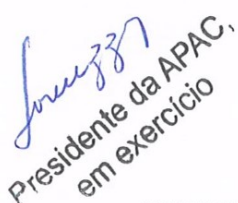 Presidente da APAC,
em exercício